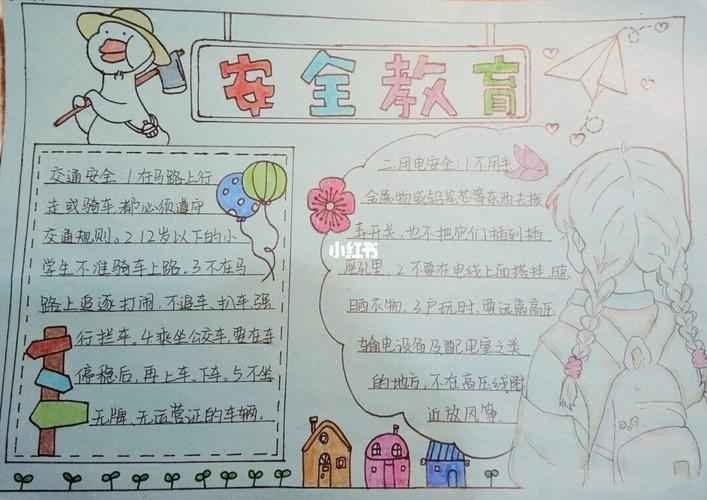 安全教育
交通安全 1在马路上行
走或骑车都必须遵守
交通规则。2 12岁以下的小
学生不准骑车上路. 3不在马
路上追逐打闹, 不追车. 扒车. 强
行拦车. 4乘坐公交车要在车
停稳后, 再上车. 下车. 5不坐
无牌. 无运营证的车辆.
二.用电安全: 1不用手
金属物或铅笔芯等东西去拨
弄开关, 也不把它们插到插
座孔里. 2不要在电线上面搭挂. 晾
晒衣物. 3户玩时. 要远离高压
输电设备及配电室之类
的地方. 不在高压线附
近放风筝.
小红书